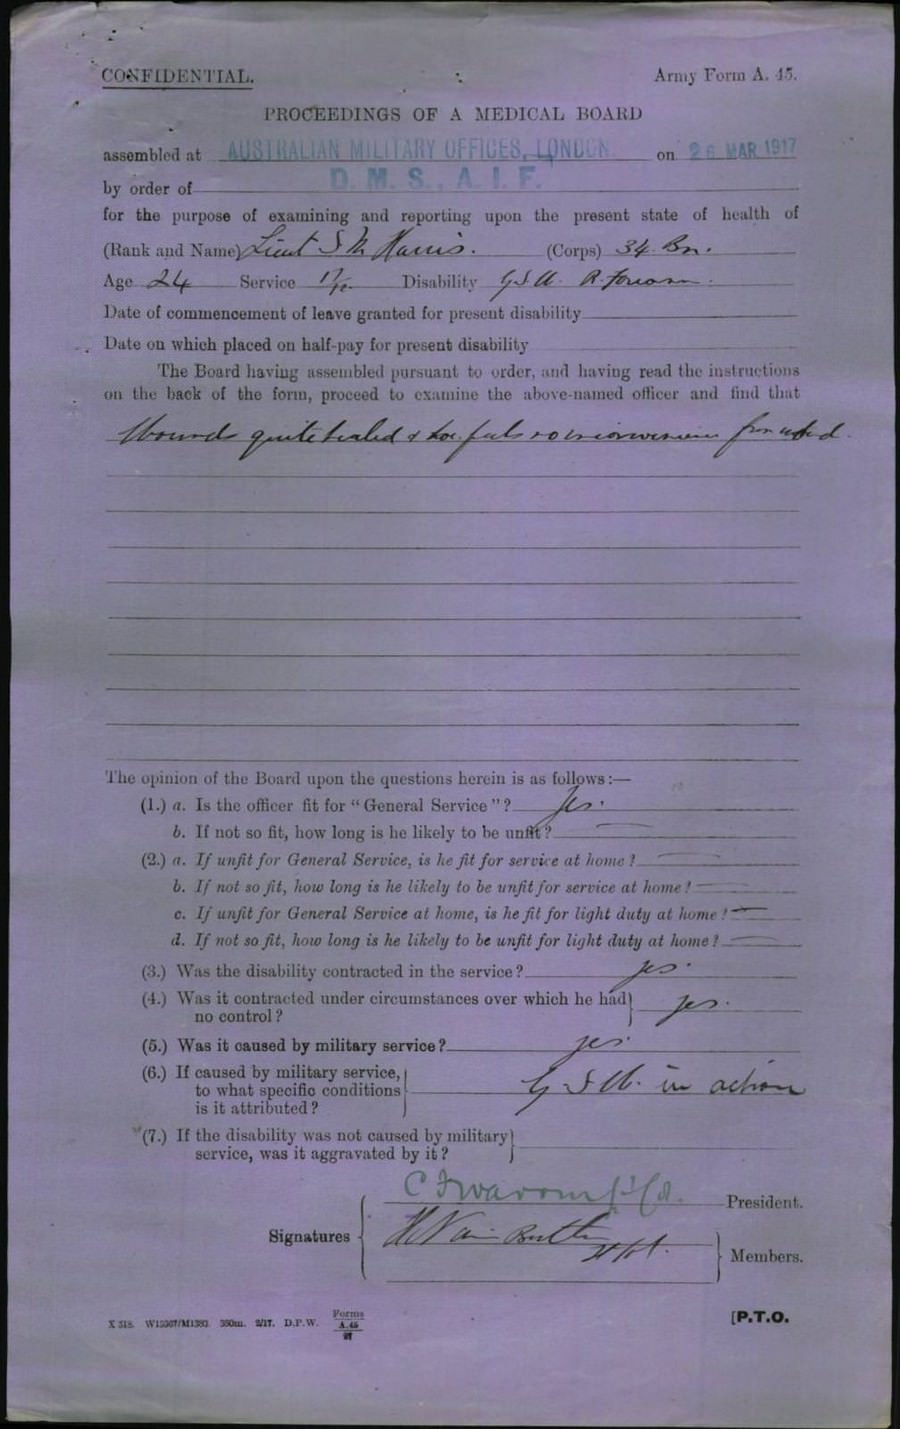 CONFIDENTIAL.
Army Form A. 45.
PROCEEDINGS OF A MEDICAL BOARD
assembled at AUSTRALIAN MILITARY OFFICES, LONDON. on 26 MAR 1917
by order of D. M. S., A. I. F.
for the purpose of examining and reporting upon the present state of health of
(Rank and Name) Lieut Harris. (Corps) 34 Bn.
Age 24 Service Disability G S W. R. Forearm.
Date of commencement of leave granted for present disability
Date on which placed on half-pay for present disability
The Board having assembled pursuant to order, and having read the instructions
on the back of the form, proceed to examine the above-named officer and find that
Wounds quite healed & he feels no inconvenience from
The opinion of the Board upon the questions herein is as follows:—
(1.) a. Is the officer fit for "General Service"? Yes.
b. If not so fit, how long is he likely to be unfit? —
(2.) a. If unfit for General Service, is he fit for service at home? —
b. If not so fit, how long is he likely to be unfit for service at home? —
c. If unfit for General Service at home, is he fit for light duty at home? —
d. If not so fit, how long is he likely to be unfit for light duty at home? —
(3.) Was the disability contracted in the service? yes.
(4.) Was it contracted under circumstances over which he had } yes.
no control?
(5.) Was it caused by military service? yes.
(6.) If caused by military service,
to what specific conditions } G S W. in action
is it attributed?
(7.) If the disability was not caused by military }
service, was it aggravated by it?
President.
Signatures
Members.
X 518. W15067/M1383. 350m. 2/17. D.P.W. Forms A.45 27
[P.T.O.